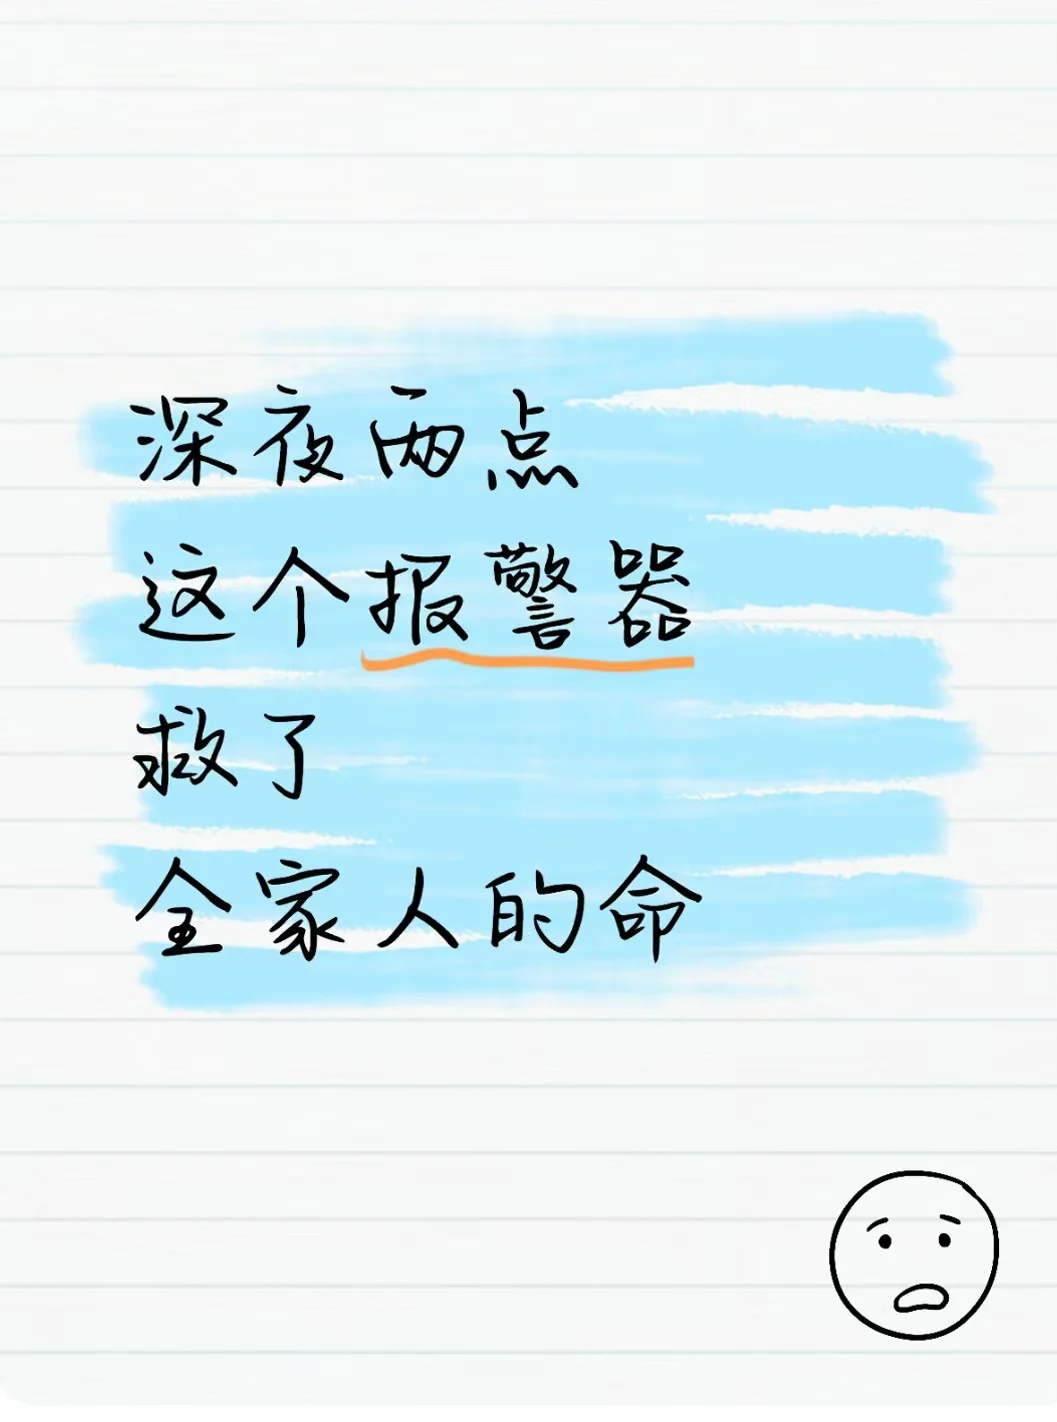 深夜两点
这个报警器
救了
全家人的命